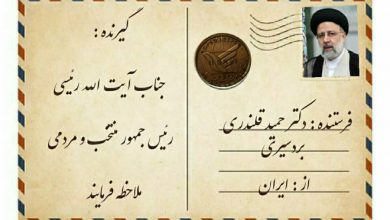 گیرنده :
جناب آیت الله رئیسی
رئیس جمهور منتخب و مردمی
ملاحظه فرمایند
فرستنده : دکتر حمید قلندری
بردسیرتی
از : ایران